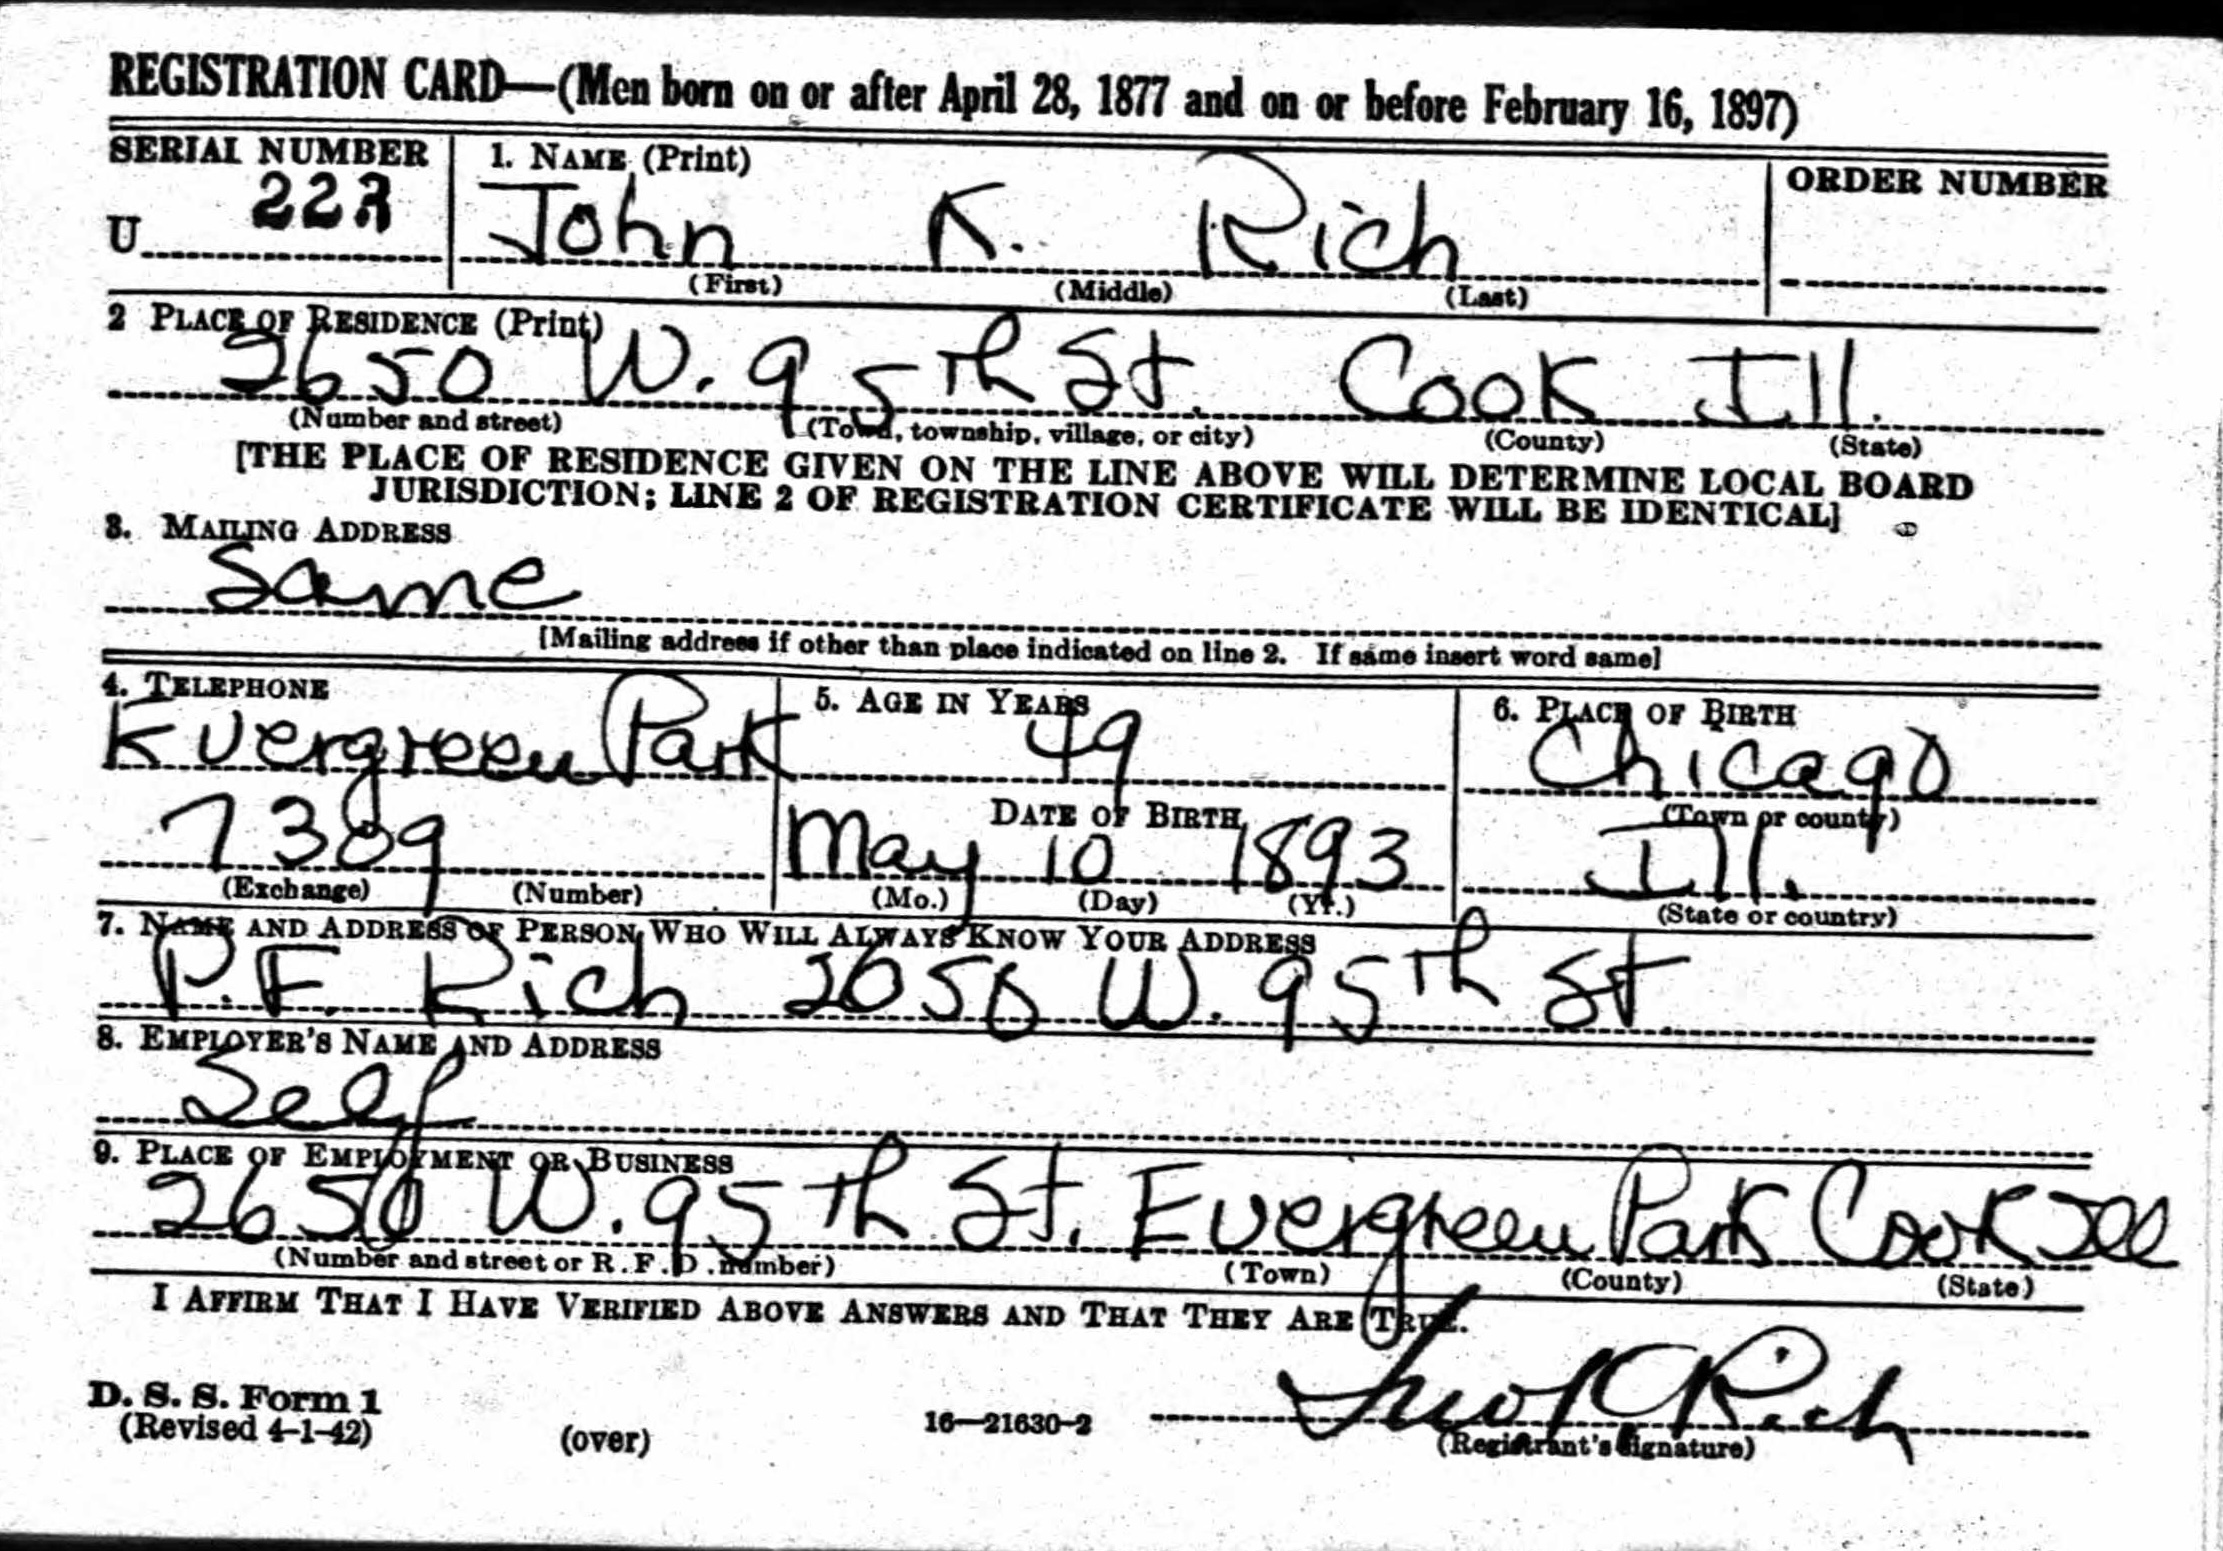 REGISTRATION CARD—(Men born on or after April 28, 1877 and on or before February 16, 1897)
SERIAL NUMBER 1. NAME (Print) ORDER NUMBER
U 223 John K. Rich
(First) (Middle) (Last)
2 PLACE OF RESIDENCE (Print)
2650 W. 95th St. Cook Ill.
(Number and street) (Town, township, village, or city) (County) (State)
[THE PLACE OF RESIDENCE GIVEN ON THE LINE ABOVE WILL DETERMINE LOCAL BOARD
JURISDICTION; LINE 2 OF REGISTRATION CERTIFICATE WILL BE IDENTICAL]
3. MAILING ADDRESS
Same
[Mailing address if other than place indicated on line 2. If same insert word same]
4. TELEPHONE 5. AGE IN YEARS 6. PLACE OF BIRTH
Evergreen Park 49 Chicago
DATE OF BIRTH (Town or county)
7389 May 10 1893 Ill.
(Exchange) (Number) (Mo.) (Day) (Yr.) (State or country)
7. NAME AND ADDRESS OF PERSON WHO WILL ALWAYS KNOW YOUR ADDRESS
P.F. Rich 2650 W. 95th St
8. EMPLOYER'S NAME AND ADDRESS
Self
9. PLACE OF EMPLOYMENT OR BUSINESS
2650 W. 95th St. Evergreen Park Cook Ill
(Number and street or R. F. D. number) (Town) (County) (State)
I AFFIRM THAT I HAVE VERIFIED ABOVE ANSWERS AND THAT THEY ARE TRUE.
D. S. S. Form 1
(Revised 4-1-42) (over) 16—21630-2 Jno K Rich
(Registrant's signature)